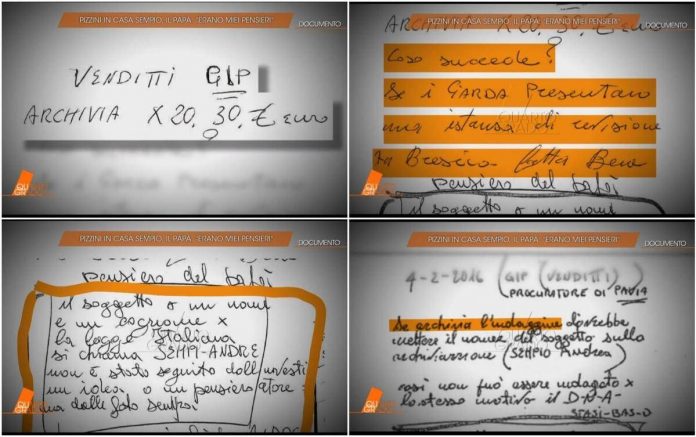 PIZZINI IN CASA SEMPIO, IL PAPA': "ERANO MIEI PENSIERI"
DOCUMENTO
VENDITTI GIP
ARCHIVIA X 20. 30. € euro
PIZZINI IN CASA SEMPIO, IL PAPA': "ERANO MIEI PENSIERI"
DOCUMENTO
ARCHIVIA X 20. 30. € euro
Cosa succede?
Se i GARDA PRESENTANO
una istanza di revisione
BRESCIA Bene
pensiero del
il soggetto a un nome
PIZZINI IN CASA SEMPIO, IL PAPA': "ERANO MIEI PENSIERI"
DOCUMENTO
pensiero del
il soggetto a un nome
e un cognome x
la legge Italiana
si chiama SEMPI-ANDRE
non è stato seguito
un idea o un pensiero
dalle foto
PIZZINI IN CASA SEMPIO, IL PAPA': "ERANO MIEI PENSIERI"
DOCUMENTO
4-2-2016 (GIP (VENDITTI)
(PROCURATORE DI PAVIA
Se archivia l'indagine dovrebbe
mettere il nome del soggetto sulla
archiviazione (SEMPIO Andrea)
così non può essere indagato x
lo stesso motivo il D-N-A-
STASI-BAS-D